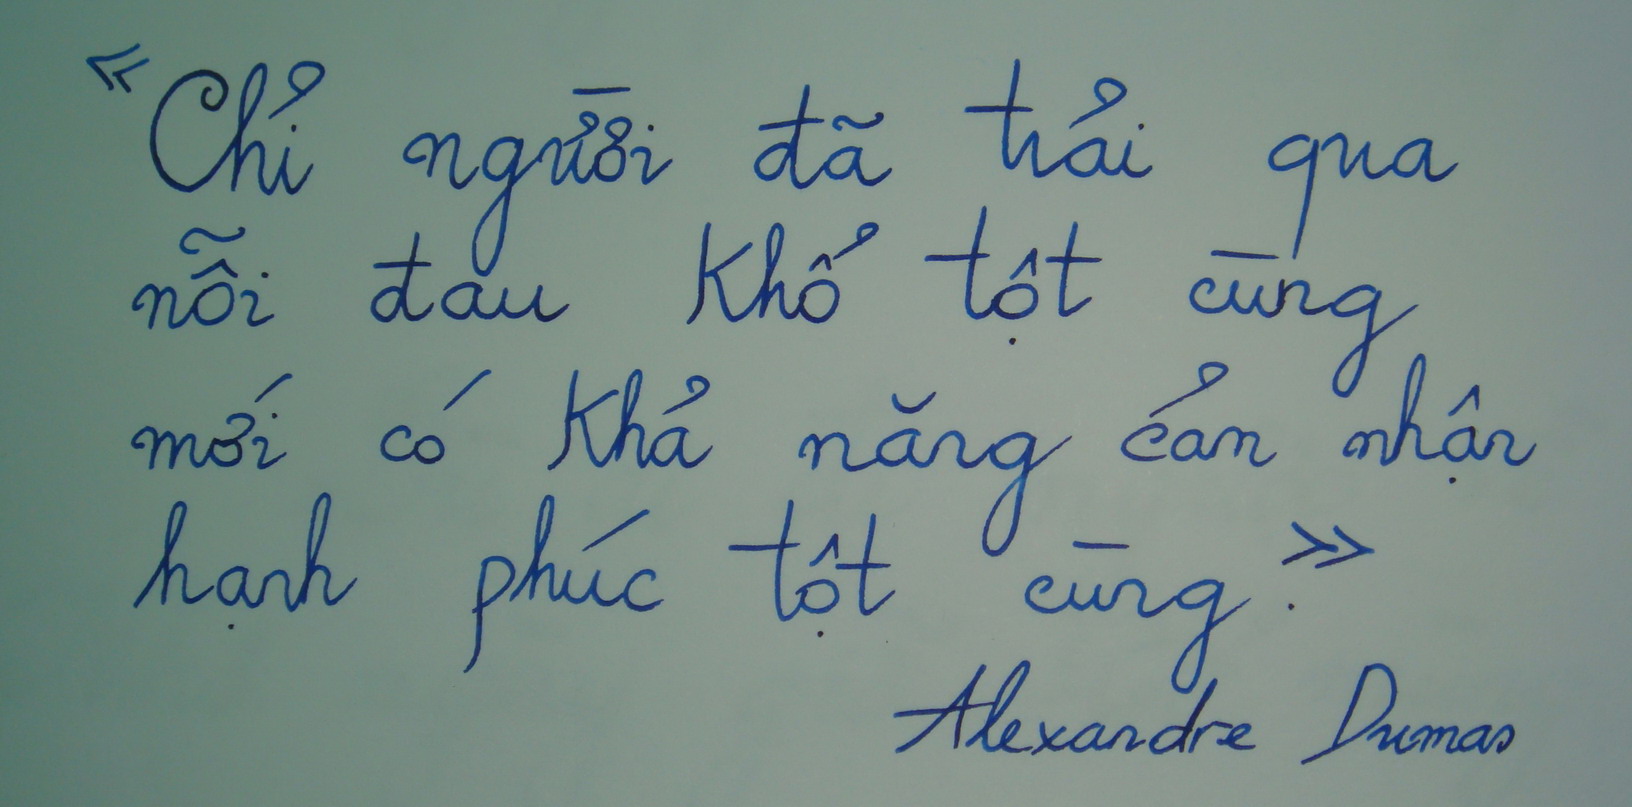 «Chỉ người đã trải qua
nỗi đau khổ tột cùng
mới có khả năng cảm nhận
hạnh phúc tột cùng.»
Alexandre Dumas